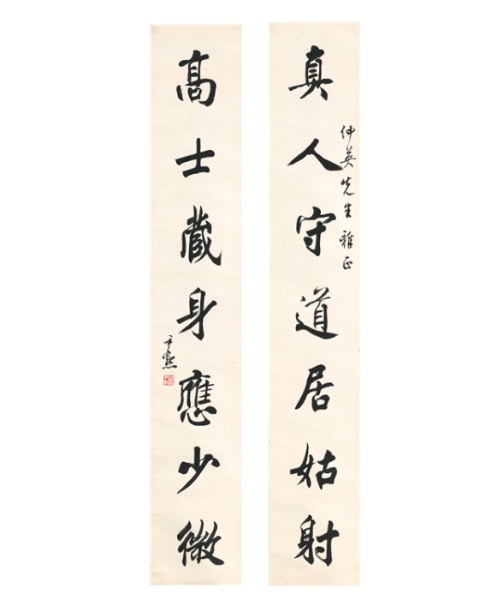 真人守道居姑射
仲英先生雅正
高士蔵身應少微
尹默